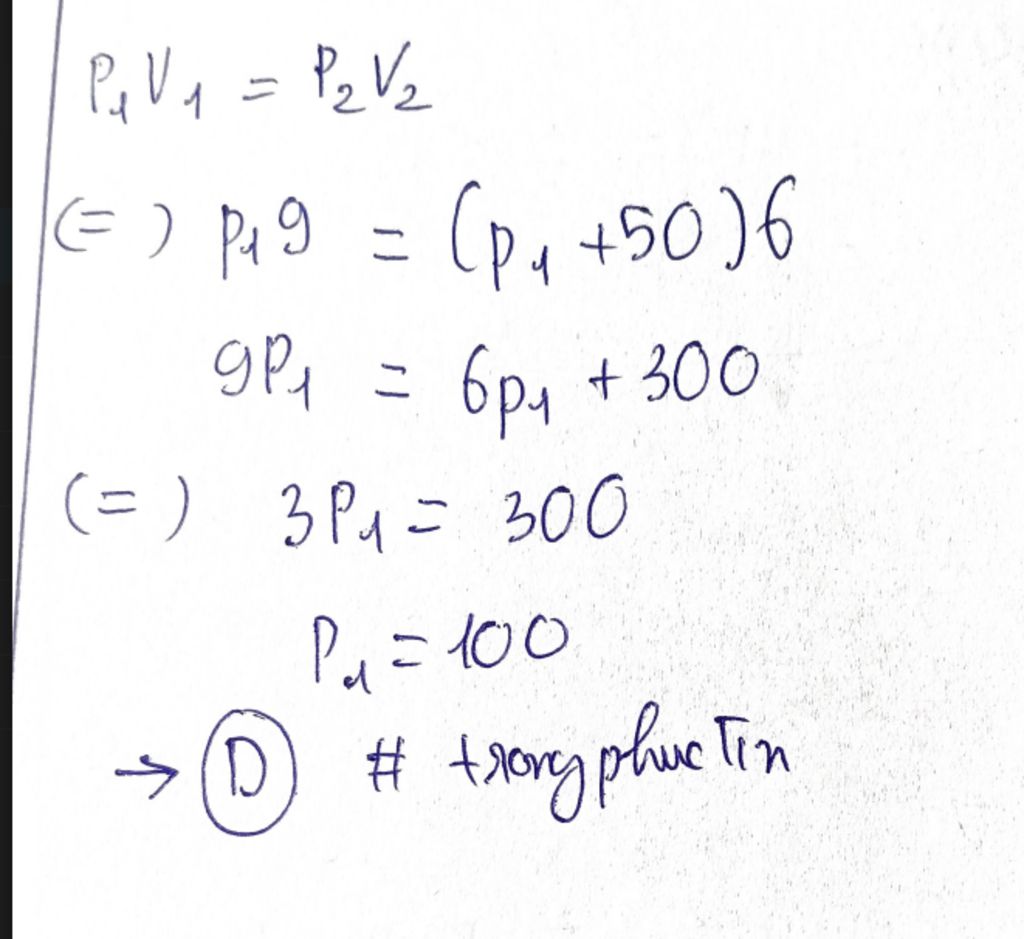 P₁V₁ = P₂V₂
(=) p₁9 = (p₁ +50)6
9P₁ = 6p₁ +300
(=) 3P₁ = 300
P₁ = 100
→ D # trongphucTin